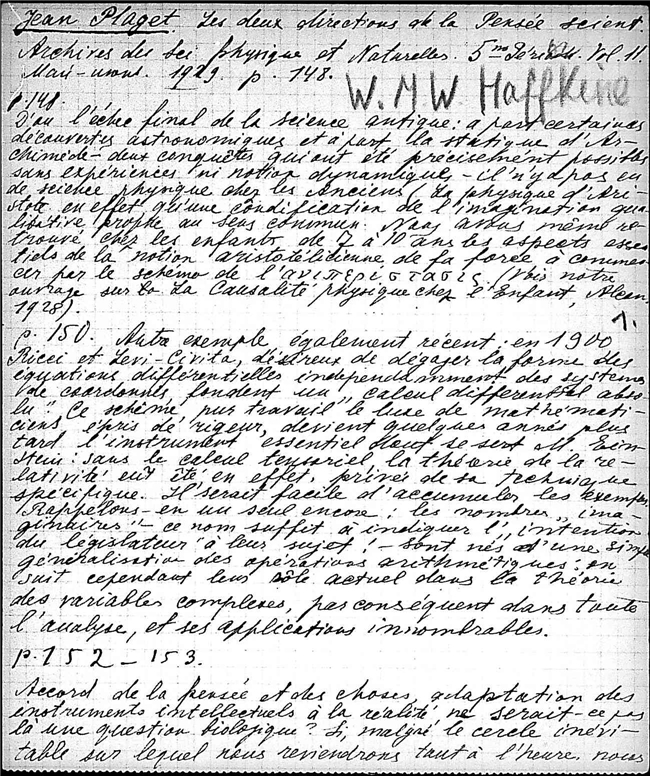 Jean Piaget. Les deux directions de la Pensée scient.
Archives des Sci. Physique et Naturelles. 5me Période. Vol. 11.
Mars-avril. 1929. p. 148.
W. M W Haffkine
p. 148.
D'où l'échec final de la science antique: à part certaines
découvertes astronomiques et à part la statique d'Ar-
chimède - deux conquêtes qui ont été précisément possibles
sans expériences ni notion dynamiques, - il n'y a pas eu
de science physique chez les Anciens, La physique d'Ari-
stote en effet qu'une condification de l'imagination qua-
litative, propre au sens commun. Nous avons même re-
trouvé chez les enfants de 7 à 10 ans les aspects essen
tiels de la notion aristotélicienne de la force à commen-
cer par le schéma de l'ανιπερίστασις (Vois notre
ouvrage sur La Causalité physique chez l'Enfant, Alcan,
1928).
1.
p. 150. Autre exemple également récent: en 1900
Ricci et Levi-Civita, désireux de dégager la forme des
équations différentielles independamment des systèmes
de coordonnés fondent un "calcul différentiel abso-
lu" Ce schémé, pur travail de luxe de mathémati-
ciens épris de rigeur, devient quelques annés plus
tard l'instrument essentiel dont se sert M. Ein-
stein: sans le calcul tensoriel la théorie de la re-
lativité eut été en effet, privés de sa technique
spécifique. Il serait facile d'accumuler les exemples
Rappelons-en un seul encore: les nombres "ima-
ginaires" - ce nom suffit à indiquer l'intention
du législateur à leur sujet! - Sont nés d'une simple
généralisation des opérations arithmétiques: on
suit cependant leur rôle actuel dans la théorie
des variables complexes, pas conséquent dans toute
l'analyse, et ses applications innombrables.
p. 152 - 153.
Accord de la pensée et des choses, adaptation des
instruments intellectuels à la réalité ne serait-ce pas
là une question biologique? Si, malgré le cercle inévi-
table sur lequel nous reviendrons tout à l'heure, nous